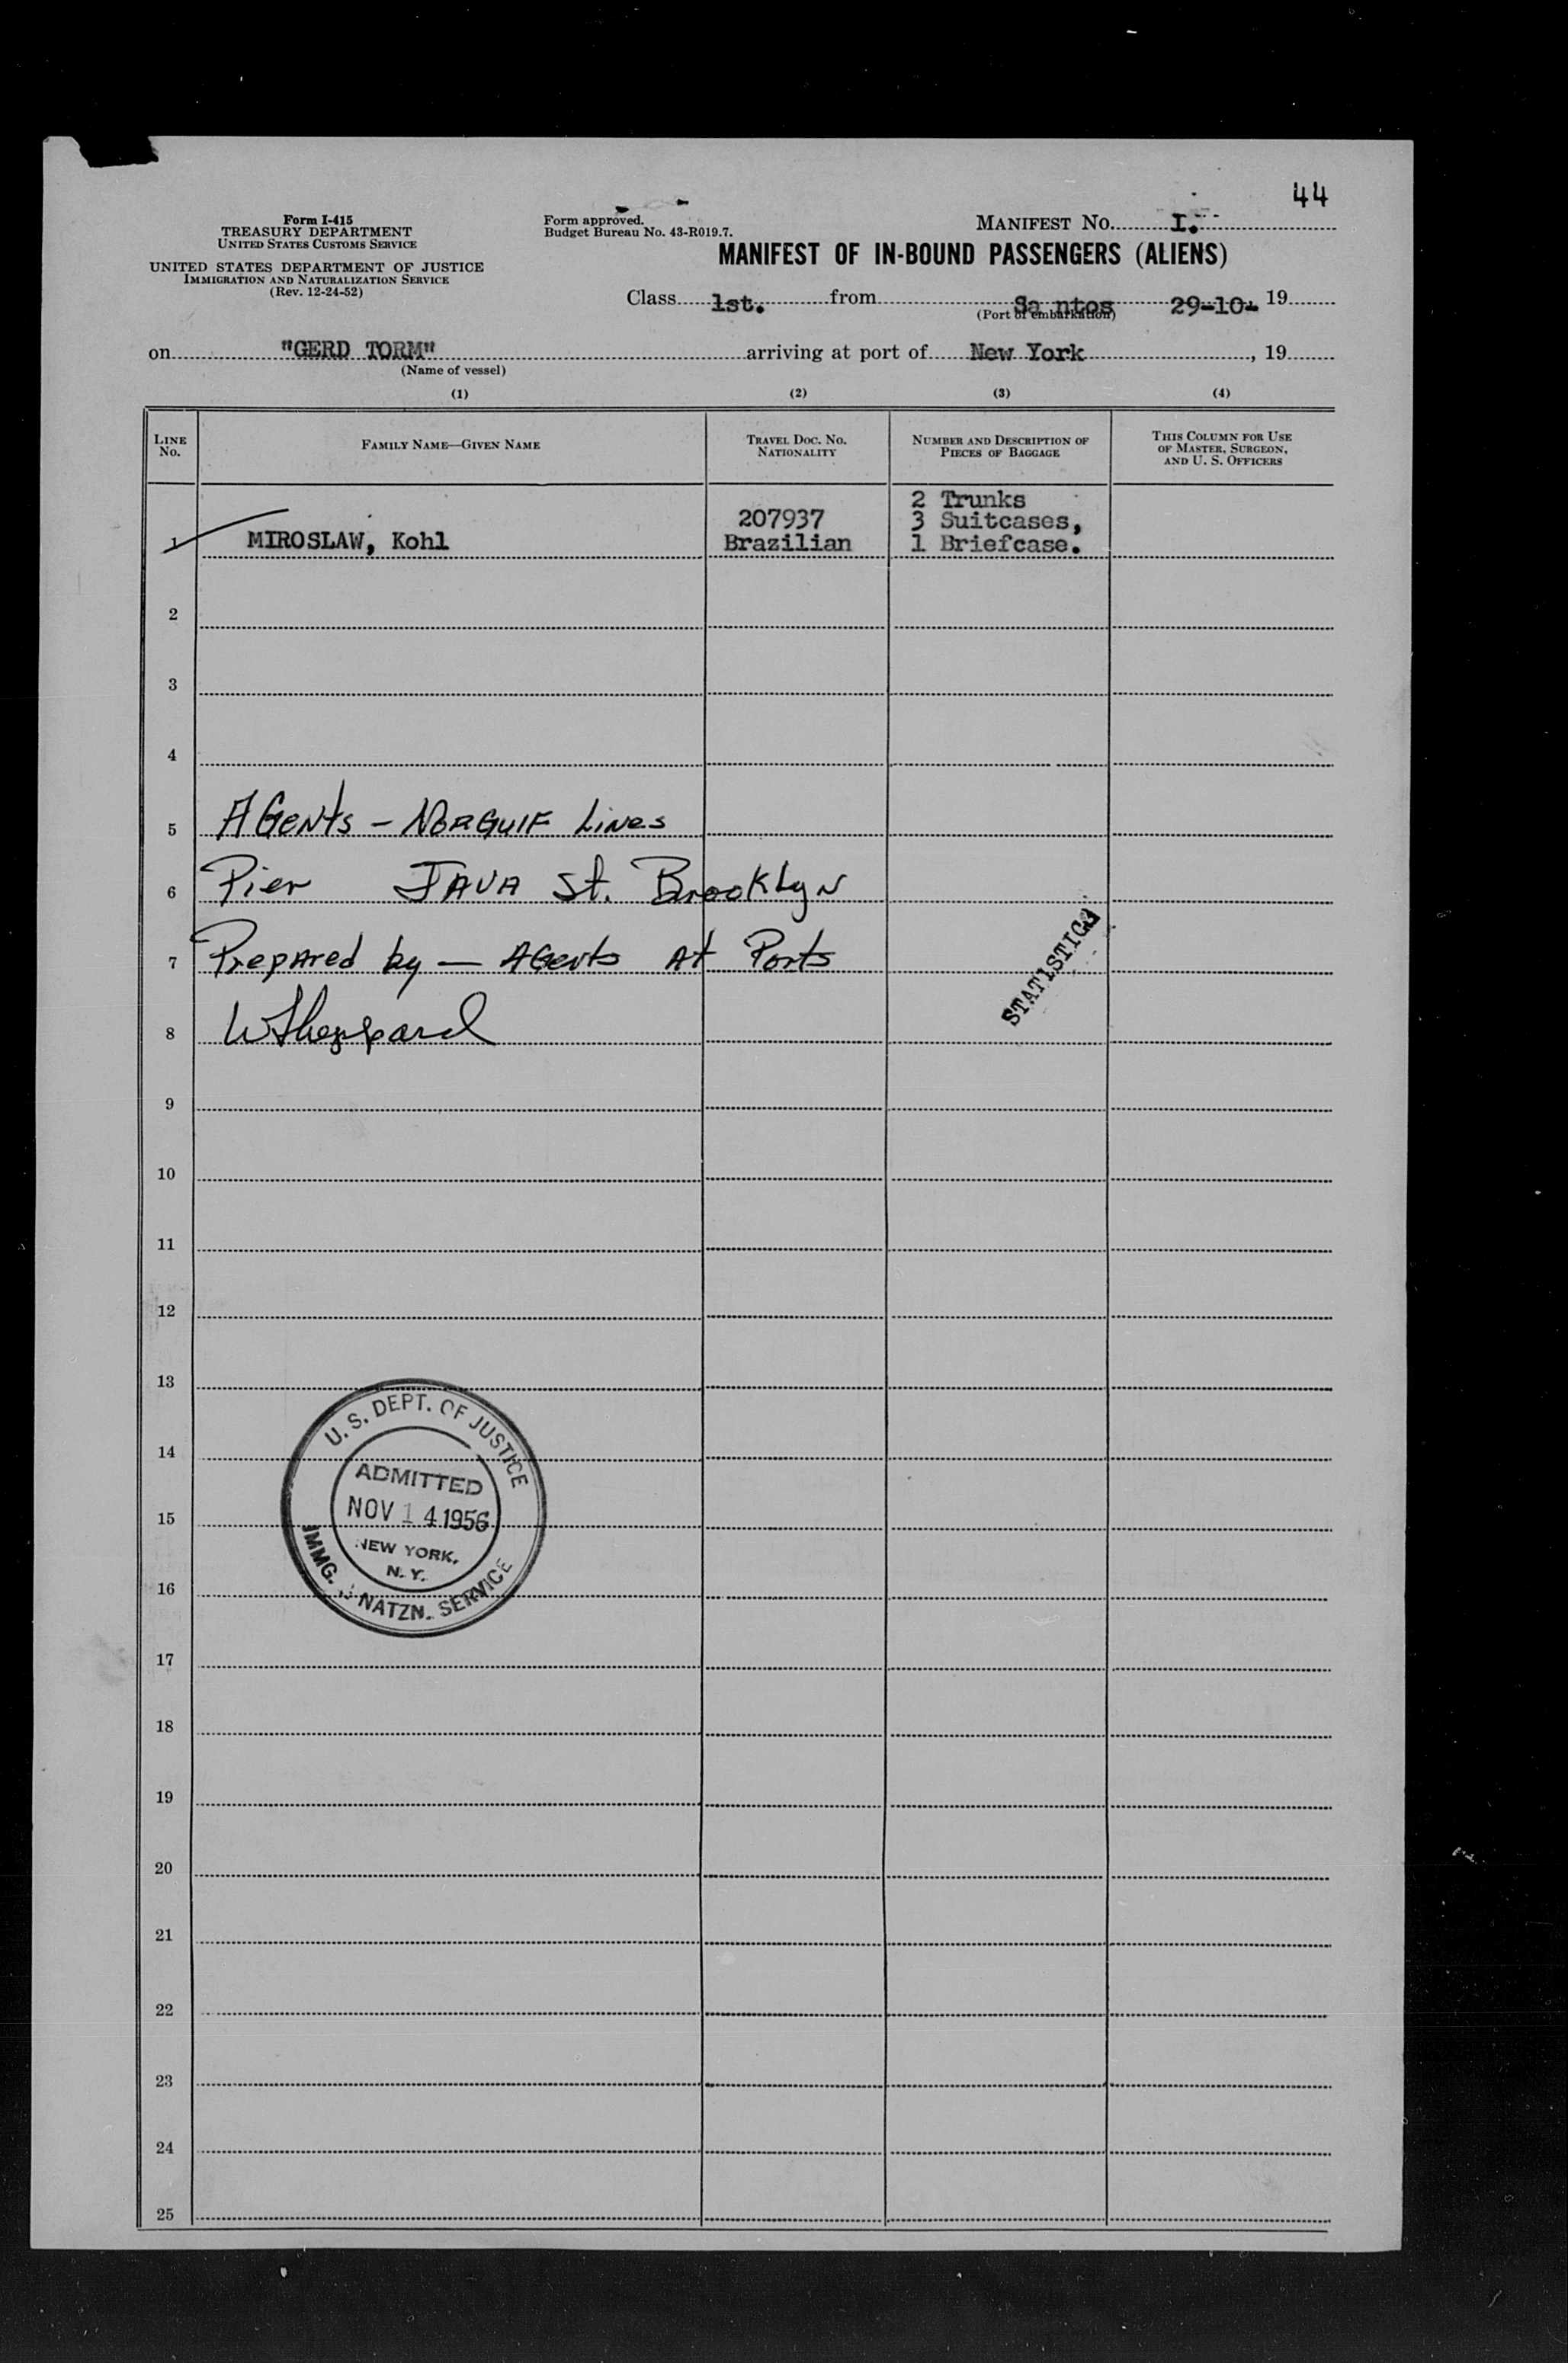 44
Form I-415
TREASURY DEPARTMENT
UNITED STATES CUSTOMS SERVICE
UNITED STATES DEPARTMENT OF JUSTICE
IMMIGRATION AND NATURALIZATION SERVICE
(Rev. 12-24-52)
Form approved.
Budget Bureau No. 43-R019.7.
MANIFEST NO. I.
MANIFEST OF IN-BOUND PASSENGERS (ALIENS)
Class 1st. from Santos 29-10- 19
(Port of embarkation)
on "GERD TORM" arriving at port of New York, 19
(Name of vessel)
(1) (2) (3) (4)
LINE NO.
FAMILY NAME—GIVEN NAME
TRAVEL DOC. NO.
NATIONALITY
NUMBER AND DESCRIPTION OF
PIECES OF BAGGAGE
THIS COLUMN FOR USE
OF MASTER, SURGEON,
AND U. S. OFFICERS
1 MIROSLAW, Kohl
207937
Brazilian
2 Trunks
3 Suitcases,
1 Briefcase.
2
3
4
5 AGents - NORGulF Lines
6 Pier JAVA St. Brooklyn
7 Prepared by — AGents At Ports
8 WSheppard
STATISTICS
9
10
11
12
13
14
15
16
U. S. DEPT. OF JUSTICE
ADMITTED
NOV 14 1956
NEW YORK,
N. Y.
IMMG. & NATZN. SERVICE
17
18
19
20
21
22
23
24
25